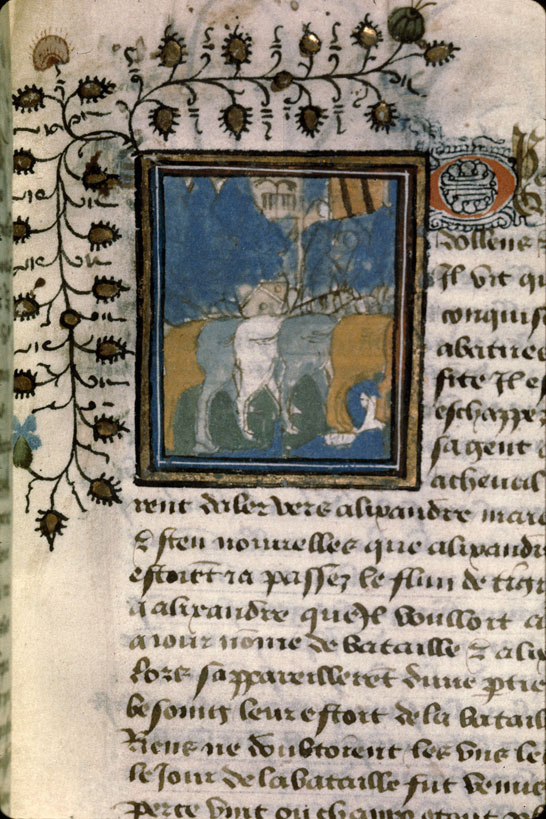 dollens
Il vit qu
conquis
abatues
fite Il es
eschappe
sa gent
acheual
rent daler vers alixandre
& sceu nouuelles que alixandr
estoit ia passez le flun de tigr
a alixandre quil voulloit
a iour nome de bataille & alix
Lors sappareilleret dune ptie
besoing leur effort de la batail
Riens ne doubtoient les vns le
le Jour de la bataille fut venue
perce vint ou champ